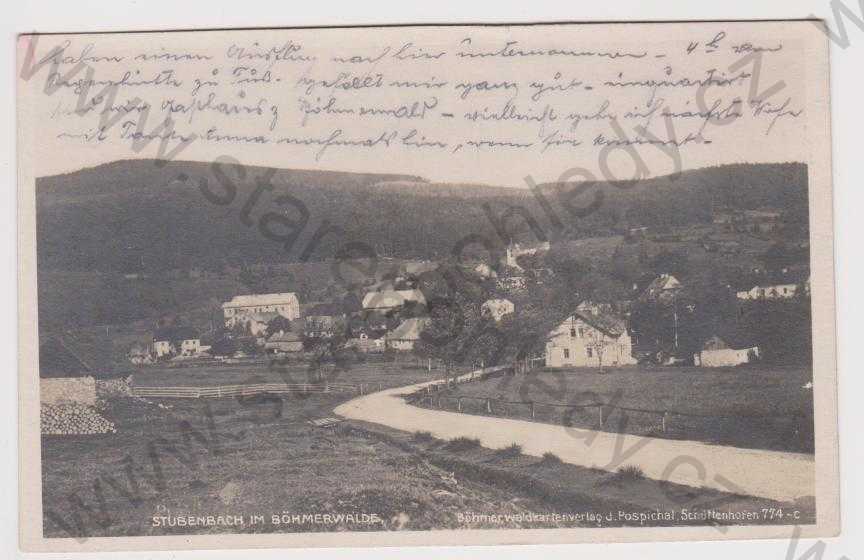 haben einen Ausflug nach hier unternommen - 4 h von
zu Fuß - gefällt mir ganz gut -
Gasthaus z Böhmerwald - vielleicht gehe ich nächste Woche
mit Tante Anna nochmals hin, wenn sie kommt -
STUBENBACH IM BÖHMERWALDE.
Böhmerwaldkartenverlag J. Pospichal, Schüttenhofen 774-c
www.stare-pohledy.cz